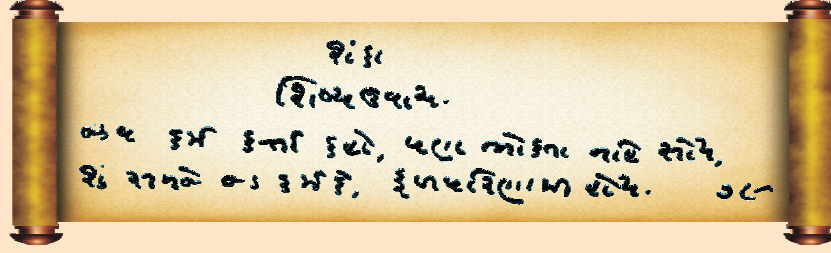 શંકા
શિષ્ય ઉવાચ.
જીવ કર્મ કર્તા કહો, પણ ભોક્તા નહિ સોય,
શું સમજે જડ કર્મ કે, ફળપરિણામી હોય. ૭૯